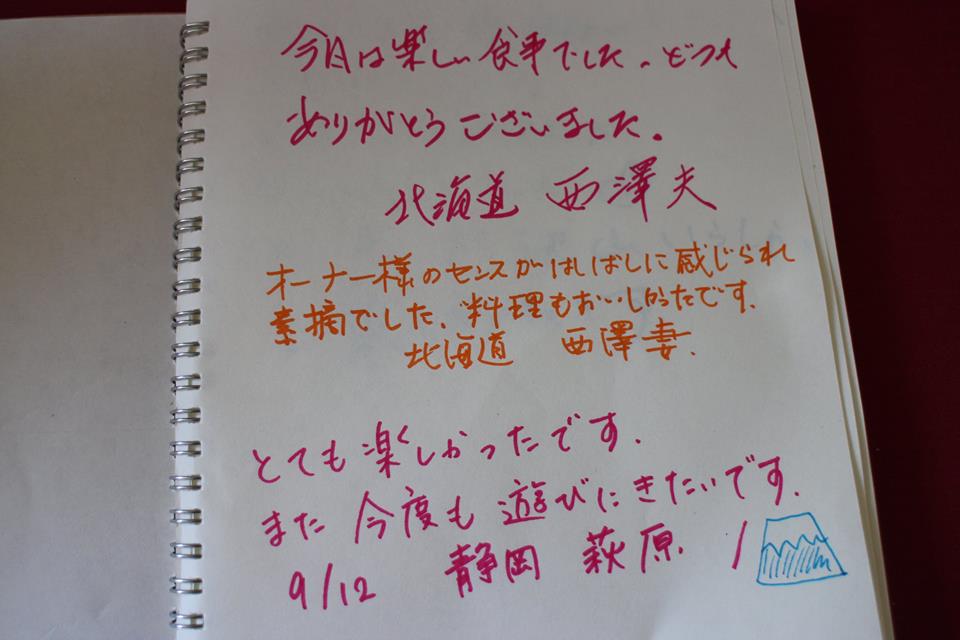 今日は楽しい食事でした。どうも
ありがとうございました。
北海道 西澤夫
オーナー様のセンスがはしばしに感じられ
素摘でした、料理もおいしかったです.
北海道 西澤妻.
とても楽しかったです.
また今度も遊びにきたいです.
9/12 静岡 萩原